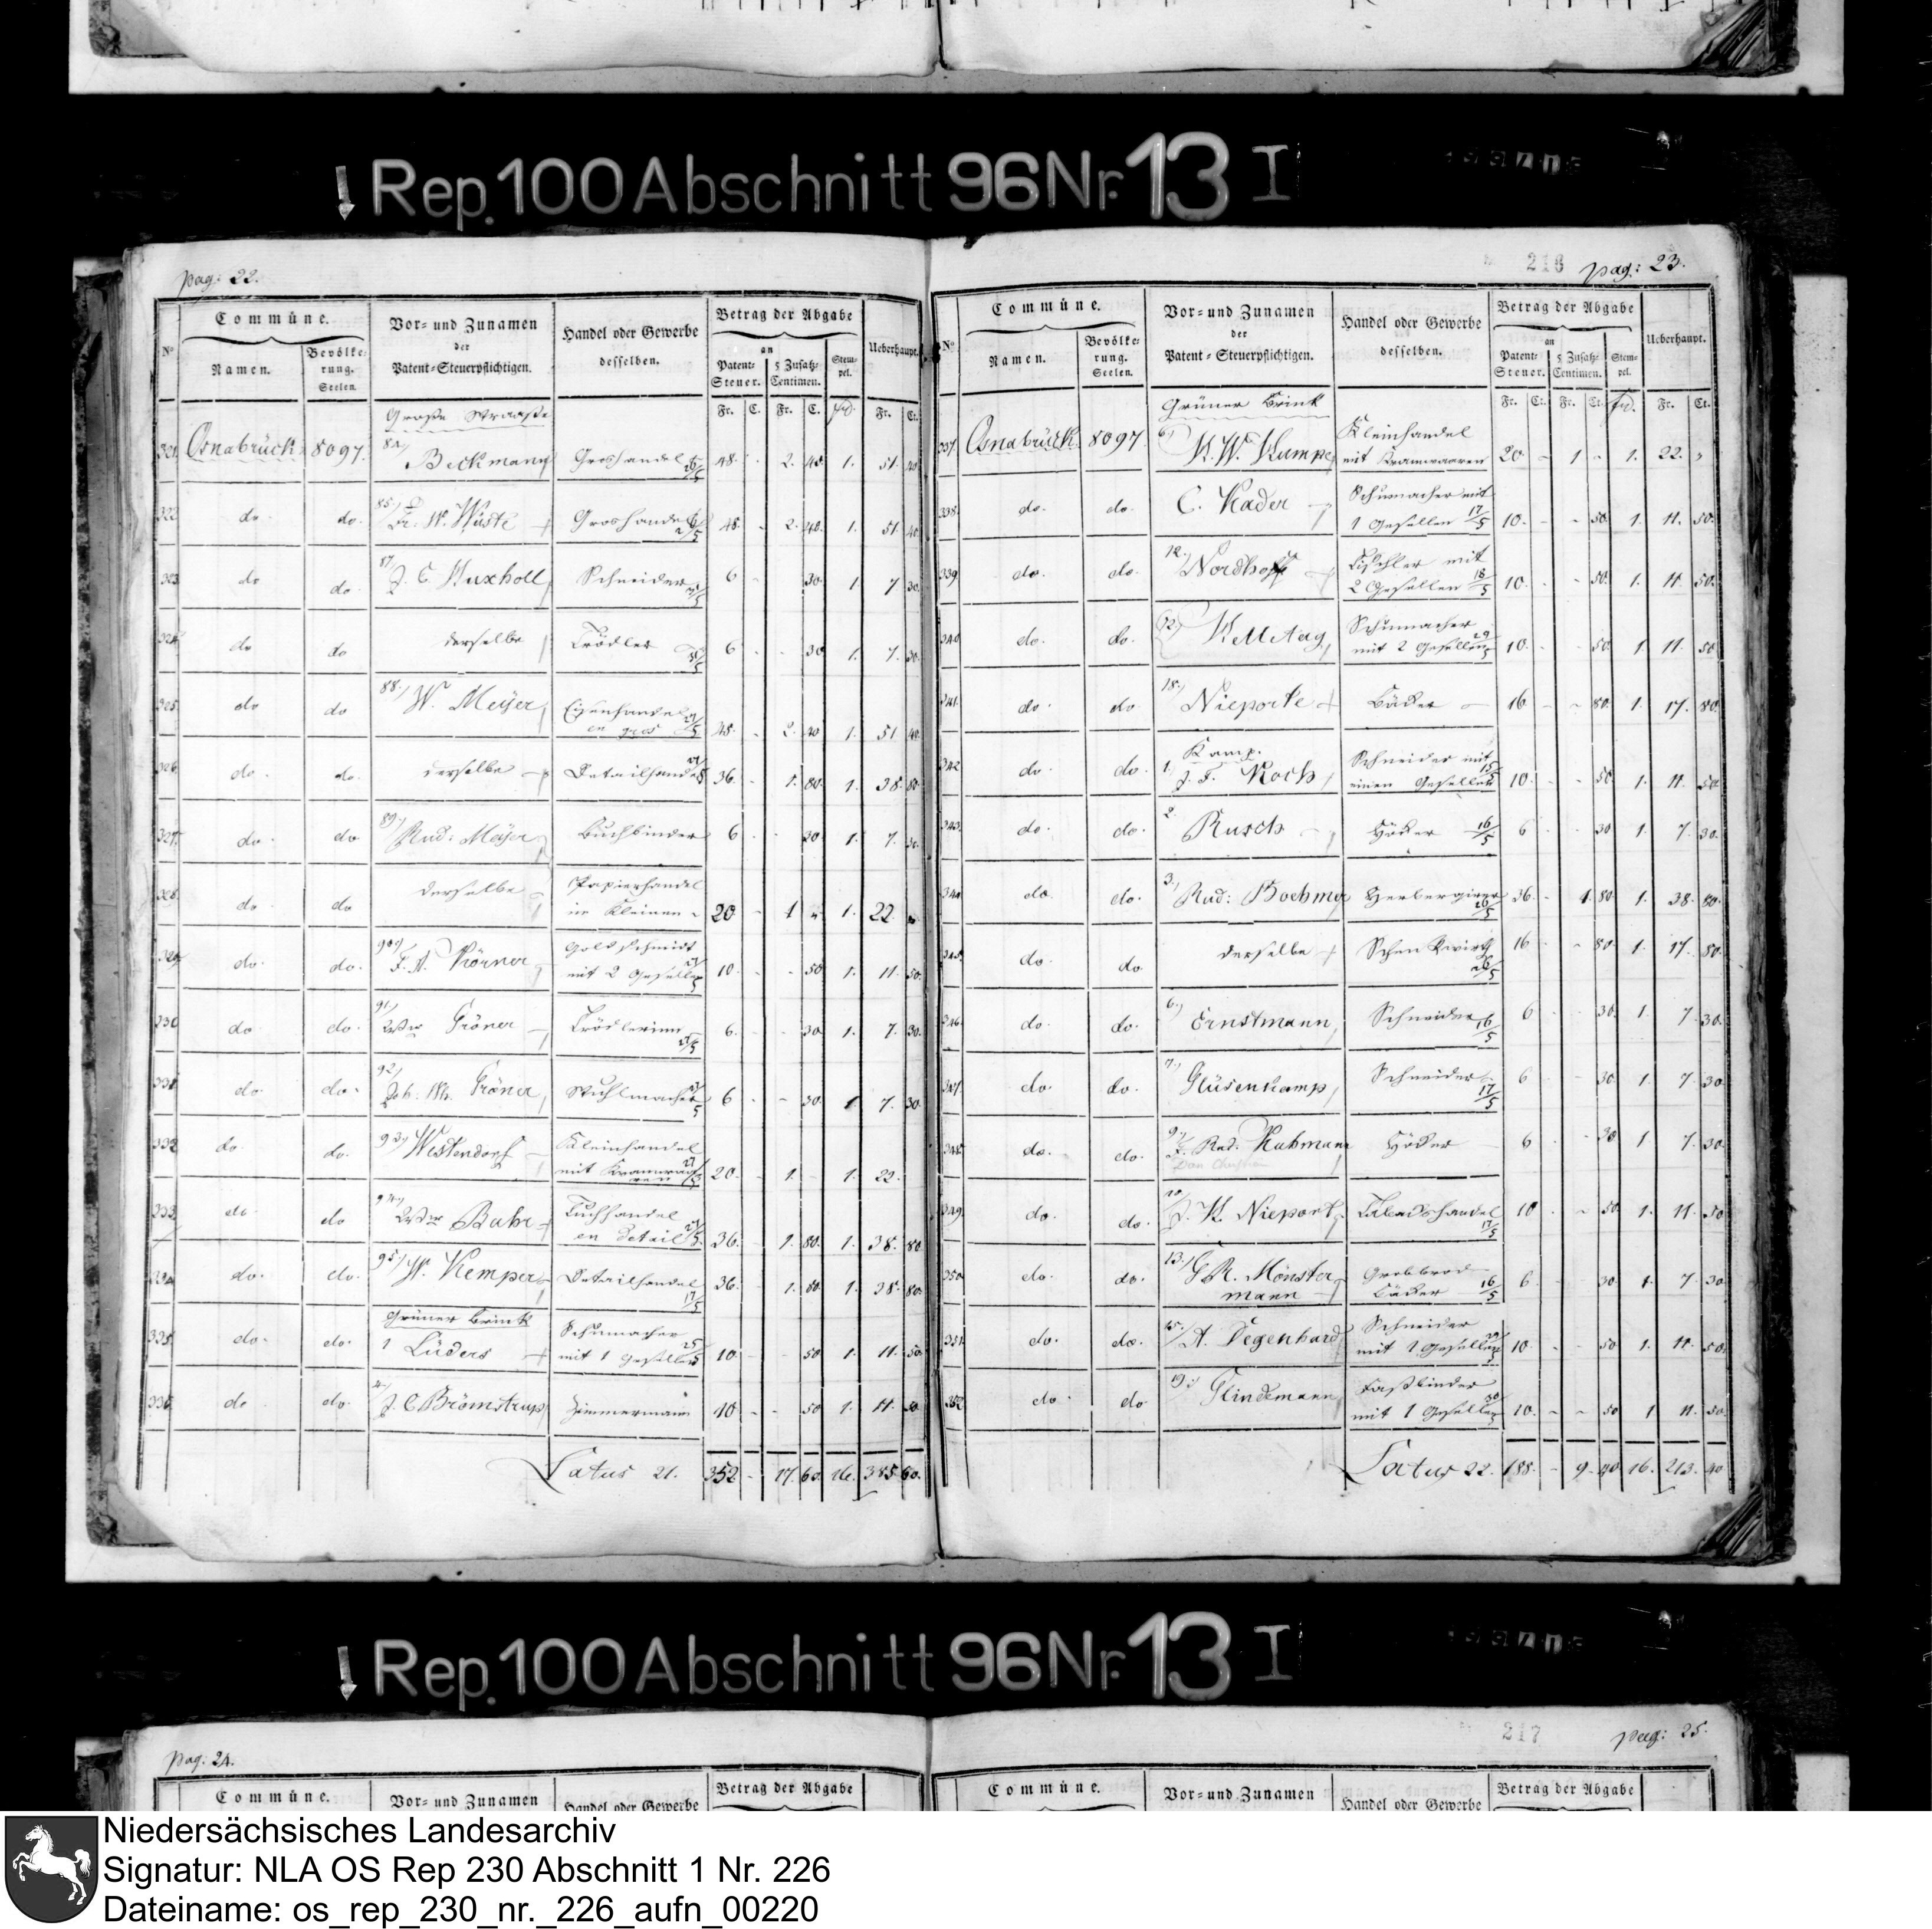 Rep. 100 Abschnitt 96 Nr. 13 I
pag: 22.
No
Commüne.
Namen.
Bevölke-
rung.
Seelen.
Vor- und Zunamen
der
Patent-Steuerpflichtigen.
Handel oder Gewerbe
desselben.
Betrag der Abgabe
an
Patent-
Steuer.
5 Zusatz-
Centimen.
Stem-
pel.
Ueberhaupt.
Fr. C. Fr. C. Fr. Ct.
Große Straaße
321. Osnabrück 8097. 84.) Beckmann Groshandel 48. - 2. 40. 1. 51. 40
322 do. do. 85.) Fr. W. Wüste Groshandel 48. - 2. 40. 1. 51. 40
323 do do. 87) J. C. Huxholl Schneider 6 - - 30 1 7. 30.
324 do do derselbe Trödler 6 - - 30 1. 7. 30.
325 do do 88.) W. Meijer Eisenhandel
en gros 48. - 2. 40 1. 51 40
326 do. do. derselbe Detailhandel 36. - 1. 80. 1. 38. 80.
327. do. do 89.) Rud: Meijer Buchbinder 6 - - 30 1. 7. 30.
328. do. do derselbe Papierhandel
im Kleinen 20 - 1 - 1. 22
329 do. do. 90) F. A. Körner Goldschmidt
mit 2 Gesellen 10. - - 50 1. 11. 50.
330 do do. 91.) Gröner Trödlerinn 6. - - 30 1. 7. 30.
331 do. do. 92) Joh. Gröner Stuhlmacher 6 - - 30. 1 7. 30
332 do. do. 93) Westendorf Kleinhandel
mit Kramwaa-
ren 20 - 1. - 1. 22.
333. do. do 94.) Bahr Tuchhandel
en Detail 36. - 1. 80. 1. 38. 80
334 do. do. 95) W. Kemper Detailhandel 17/5 36. - 1. 80. 1. 38. 80.
Grüner Brink
335. do. do. 1 Lüders Schumacher
mit 1 Gesellen 25/5 10. - - 50 1. 11. 50.
336. do. do. 4.) J. C. Brömstrup Zimmermann 10 - - 50 1. 11. 50.
Latus 21. 352 - 17. 60. 16. 385. 60.
216 pag: 23.
No
Commüne.
Namen.
Bevölke-
rung.
Seelen.
Vor- und Zunamen
der
Patent-Steuerpflichtigen.
Handel oder Gewerbe
desselben.
Betrag der Abgabe
an
Patent-
Steuer.
5 Zusatz-
Centimen.
Stem-
pel.
Ueberhaupt.
Fr. Ct. Fr. Ct. Fr. Ct.
Grüner Brink
337. Osnabrück 8097. 6.) K. W. Kumpe Kleinhandel
mit Kramwaaren 20 - 1 - 1. 22.
338. do. do. C. Kader Schumacher mit
1 Gesellen 17/5 10. - - 50. 1. 11. 50.
339. do. do. 12.) Nordhoff Tischler mit
2 Gesellen 18/5 10 - - 50. 1. 11. 50.
340 do. do. 12) Schumacher
mit 2 Gesellen 10. - - 50. 1. 11. 50
341. do. do 18.) Nieporte Bäcker 16 - - 80. 1. 17. 80.
Kamp.
342 do. do. 1. J. F. Koch Schneider mit
einen Gesellen 10. - - 50. 1. 11. 50
343. do. do. 2. Rusch Höcker 16/5 6 - - 30 1. 7. 30.
344 do. do. 3.) Rud: Boehmer Herbergirer 36 - 1. 80. 1. 38. 80.
345. do. do. derselbe Schenkwirth 16 - - 80. 1. 17. 80.
346. do. do. 6.) Ernstmann Schneider 16/5 6 - - 30. 1. 7. 30.
347. do. do. 7.) Glüsenkamp Schneider 17/5 6 - - 30. 1. 7. 30
348. do. do. 9.) Rud. Kuhmann Höcker 6 - - 30. 1 7. 30.
349. do. do. 10.) J. K. Nieport Tabackshandel 17/5 10 - - 50. 1. 11. 50
350 do. do. 13.) G. R. Mönster-
mann Grobbrod-
Bäcker 16/5 6. - - 30. 1. 7 30
351. do. do. 15.) A. Degenhard Schneider
mit 1 Gesellen 10. - - 50. 1. 11. 50.
352 do. do 19.) Flindemann Faßbinder
mit 1 Gesellen 10. - - 50 1 11. 50.
Latus 22. 188. - 9. 40 16. 213. 40
Rep. 100 Abschnitt 96 Nr. 13 I
pag: 24.
Commüne.
Vor- und Zunamen
Handel oder Gewerbe
Betrag der Abgabe
217 pag: 25.
Commüne.
Vor- und Zunamen
Handel oder Gewerbe
Betrag der Abgabe
Niedersächsisches Landesarchiv
Signatur: NLA OS Rep 230 Abschnitt 1 Nr. 226
Dateiname: os_rep_230_nr._226_aufn_00220